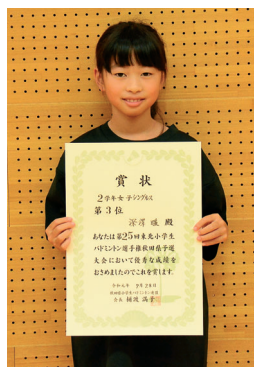 賞状
2学年女子シングルス
第3位
深澤 殿
あなたは第25回東北小学生
バドミントン選手権秋田県予選
大会において優秀な成績を
おさめましたのでこれを賞します
令和元年 9月28日
会長